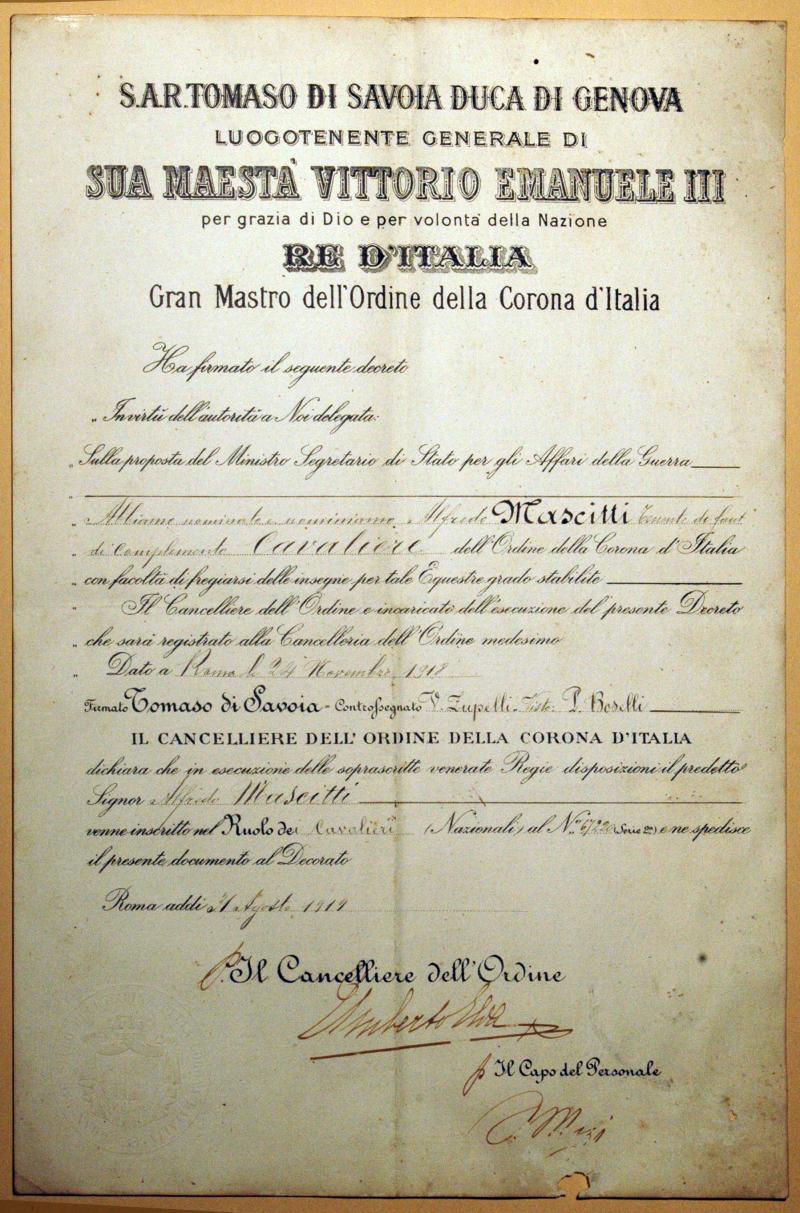 S.A.R. TOMASO DI SAVOIA DUCA DI GENOVA
LUOGOTENENTE GENERALE DI
SUA MAESTÀ VITTORIO EMANUELE III
per grazia di Dio e per volontà della Nazione
RE D'ITALIA
Gran Mastro dell'Ordine della Corona d'Italia
Ha firmato il seguente decreto
„ In virtù dell'autorità a Noi delegata:
„ Sulla proposta del Ministro Segretario di Stato per gli Affari della Guerra
„
„ Abbiamo nominato e nominiamo Alfredo Mascitti Tenente di fant
„ di complemento Cavaliere dell'Ordine della Corona d'Italia
„ con facoltà di fregiarsi delle insegne per tale Equestre grado stabilite
„ Il Cancelliere dell'Ordine è incaricato dell'esecuzione del presente Decreto
„ che sarà registrato alla Cancelleria dell'Ordine medesimo
„ Dato a Roma li 24 Novembre 1918
Firmato Tomaso di Savoia - Controssegnato V. Zupelli - Visto: P. Boselli
IL CANCELLIERE DELL'ORDINE DELLA CORONA D'ITALIA
dichiara che in esecuzione delle soprascritte venerate Regie disposizioni il predetto
Signor Alfredo Mascitti
venne inscritto nel Ruolo dei Cavalieri (Nazionali) al N.° (Serie 2ª) e ne spedisce
il presente documento al Decorato
Roma addì Agosto 1919
p. Il Cancelliere dell'Ordine
Umberto
p Il Capo del Personale